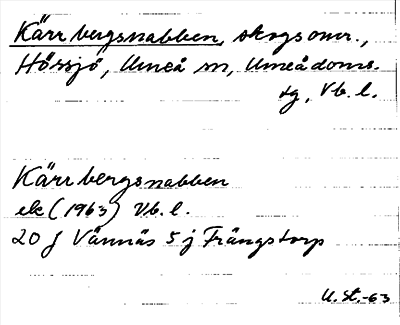 Kärrbergsnabben, skogsomr.,
Hössjö, Umeå sn, Umeå doms.
sg, Vb. l.
Kärrbergsnabben
ek (1963) Vb. l.
20 J Vännäs 5 j Frängstorp
U. St.-63